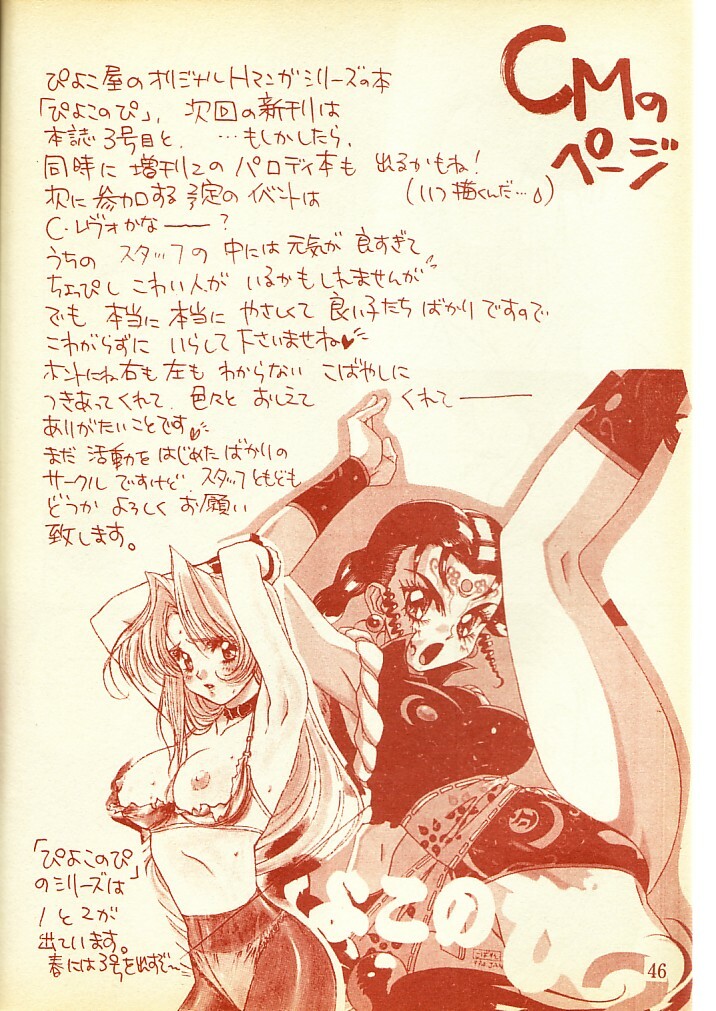 CMの
ページ
ぴよこ屋のオリジナルHマンガシリーズの本
「ぴよこのぴ」、次回の新刊は
本誌3号目と、…もしかしたら、
同時に増刊2のパロディ本も出るかもね!
(いつ描くんだ…)
次に参加する予定のイベントは
C・レヴォかな——?
うちのスタッフの中には元気が良すぎて
ちょっぴしこわい人がいるかもしれませんが
でも本当に本当にやさしくて良い子たちばかりですので
こわがらずにいらして下さいませね♥
ホントにね右も左もわからないこばやしに
つきあってくれて、色々とおしえてくれて——
ありがたいことです♥
まだ活動をはじめたばかりの
サークルですけど、スタッフともども
どうかよろしくお願い
致します。
「ぴよこのぴ」
のシリーズは
1と2が
出ています。
春には3号を出すぞ〜
よこのぴ
46